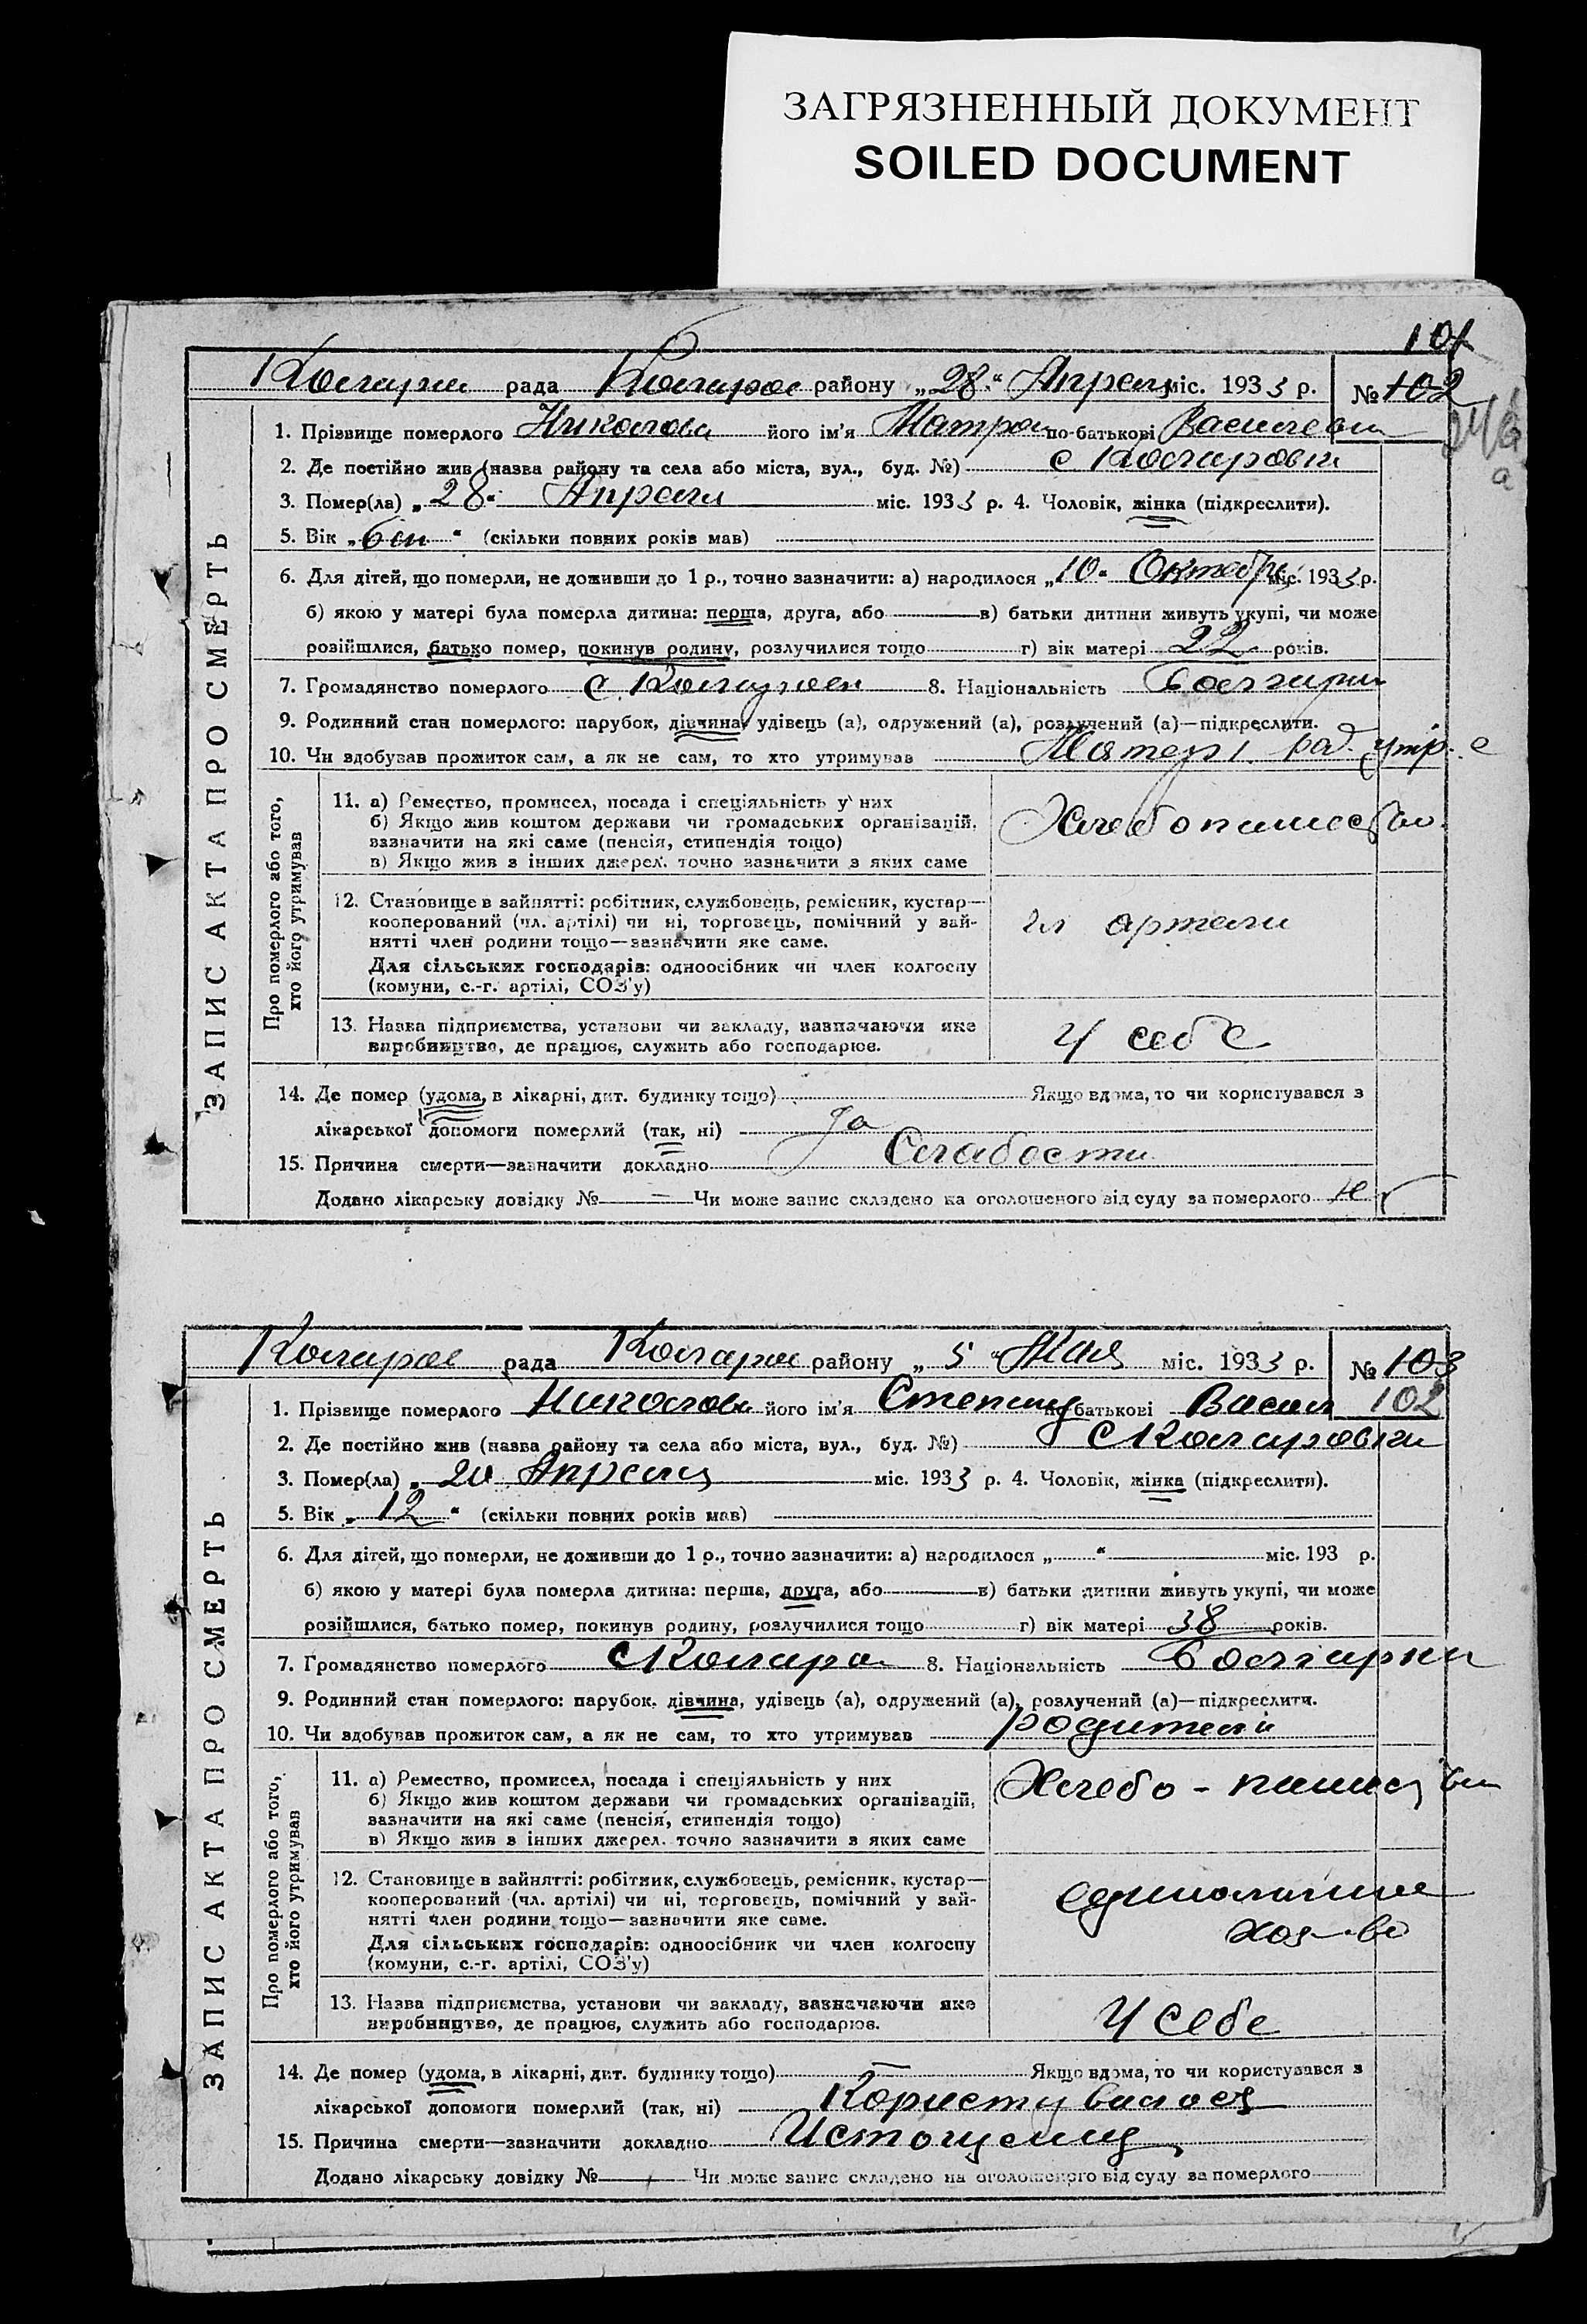 ЗАГРЯЗНЕННЫЙ ДОКУМЕНТ
SOILED DOCUMENT
101
рада району „28“ Апреля міс. 1933 р. № 102
1. Прізвище померлого Николова його ім'я по-батькові
2. Де постійно жив (назва району та села або міста, вул., буд. №) с
3. Помер(ла) „28“ Апреля міс. 1933 р. 4. Чоловік, жінка (підкреслити).
5. Вік „6 “ (скільки повних років мав)
6. Для дітей, що померли, не доживши до 1 р., точно зазначити: а) народилося „10“ Октебря міс. 1933 р.
б) якою у матері була померла дитина: перша, друга, або в) батьки дитини живуть укупі, чи може
розійшлися, батько помер, покинув родину, розлучилися тощо г) вік матері 22 років.
7. Громадянство померлого с 8. Національність
9. Родинний стан померлого: парубок, дівчина, удівець (а), одружений (а), розлучений (а)—підкреслити.
10. Чи здобував прожиток сам, а як не сам, то хто утримував
ЗАПИС АКТА ПРО СМЕРТЬ
Про померлого або того,
хто його утримував
11. а) Ремество, промисел, посада і спеціяльність у них
б) Якщо жив коштом держави чи громадських організацій,
зазначити на які саме (пенсія, стипендія тощо)
в) Якщо жив з інших джерел, точно зазначити з яких саме
12. Становище в зайнятті: робітник, службовець, ремісник, кустар—
кооперований (чл. артілі) чи ні, торговець, помічний у зай-
нятті член родини тощо—зазначити яке саме.
Для сільських господарів: одноосібник чи член колгоспу
(комуни, с.-г. артілі, СОЗ'у)
чл артели
13. Назва підприємства, установи чи закладу, зазначаючи яке
виробництво, де працює, служить або господарює.
У себе
14. Де помер (удома, в лікарні, дит. будинку тощо) Якщо вдома, то чи користувався з
лікарської допомоги померлий (так, ні) Да
15. Причина смерти—зазначити докладно Слабости
Додано лікарську довідку № — Чи може запис складено на оголошеного від суду за померлого
рада району „5“ Мая міс. 1933 р. № 103
102
1. Прізвище померлого Николова його ім'я по-батькові Васил
2. Де постійно жив (назва району та села або міста, вул., буд. №) с
3. Помер(ла) „ Апреля міс. 1933 р. 4. Чоловік, жінка (підкреслити).
5. Вік „12“ (скільки повних років мав)
6. Для дітей, що померли, не доживши до 1 р., точно зазначити: а) народилося „ “ міс. 193 р.
б) якою у матері була померла дитина: перша, друга, або в) батьки дитини живуть укупі, чи може
розійшлися, батько помер, покинув родину, розлучилися тощо г) вік матері 38 років.
7. Громадянство померлого с 8. Національність Болгарка
9. Родинний стан померлого: парубок, дівчина, удівець (а), одружений (а), розлучений (а)—підкреслити.
10. Чи здобував прожиток сам, а як не сам, то хто утримував родители
ЗАПИС АКТА ПРО СМЕРТЬ
Про померлого або того,
хто його утримував
11. а) Ремество, промисел, посада і спеціяльність у них
б) Якщо жив коштом держави чи громадських організацій,
зазначити на які саме (пенсія, стипендія тощо)
в) Якщо жив з інших джерел, точно зазначити з яких саме
12. Становище в зайнятті: робітник, службовець, ремісник, кустар—
кооперований (чл. артілі) чи ні, торговець, помічний у зай-
нятті член родини тощо—зазначити яке саме.
Для сільських господарів: одноосібник чи член колгоспу
(комуни, с.-г. артілі, СОЗ'у)
хоз-во
13. Назва підприємства, установи чи закладу, зазначаючи яке
виробництво, де працює, служить або господарює.
У себе
14. Де помер (удома, в лікарні, дит. будинку тощо) — Якщо вдома, то чи користувався з
лікарської допомоги померлий (так, ні) Користувалося
15. Причина смерти—зазначити докладно Истощения
Додано лікарську довідку № Чи може запис складено на оголошеного від суду за померлого